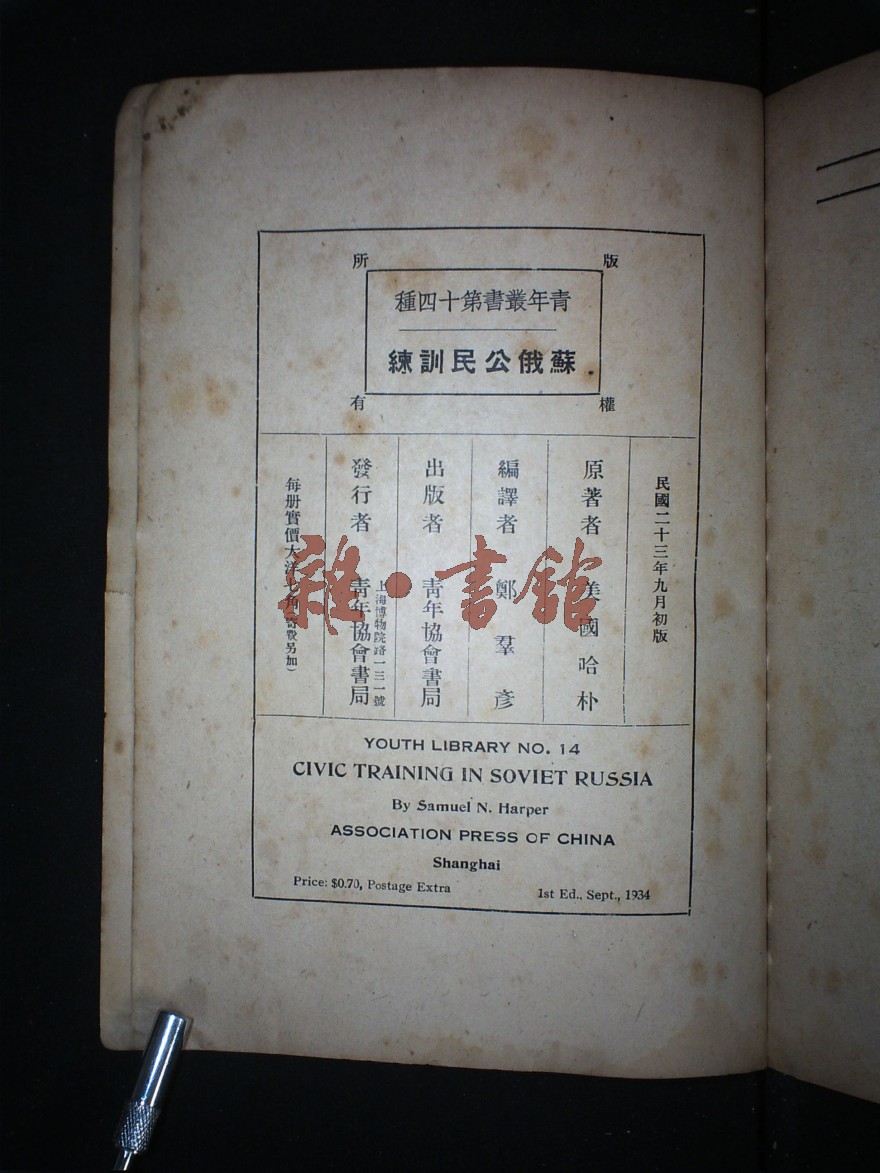 版
所
權
有
青年叢書第十四種
蘇俄公民訓練
民國二十三年九月初版
原著者 美國哈朴
編譯者 鄭羣彥
出版者 青年協會書局
發行者 青年協會書局
上海博物院路一三一號
每册實價大洋七角（寄費另加）
雜·書館
YOUTH LIBRARY NO. 14
CIVIC TRAINING IN SOVIET RUSSIA
By Samuel N. Harper
ASSOCIATION PRESS OF CHINA
Shanghai
Price: $0.70, Postage Extra
1st Ed., Sept., 1934